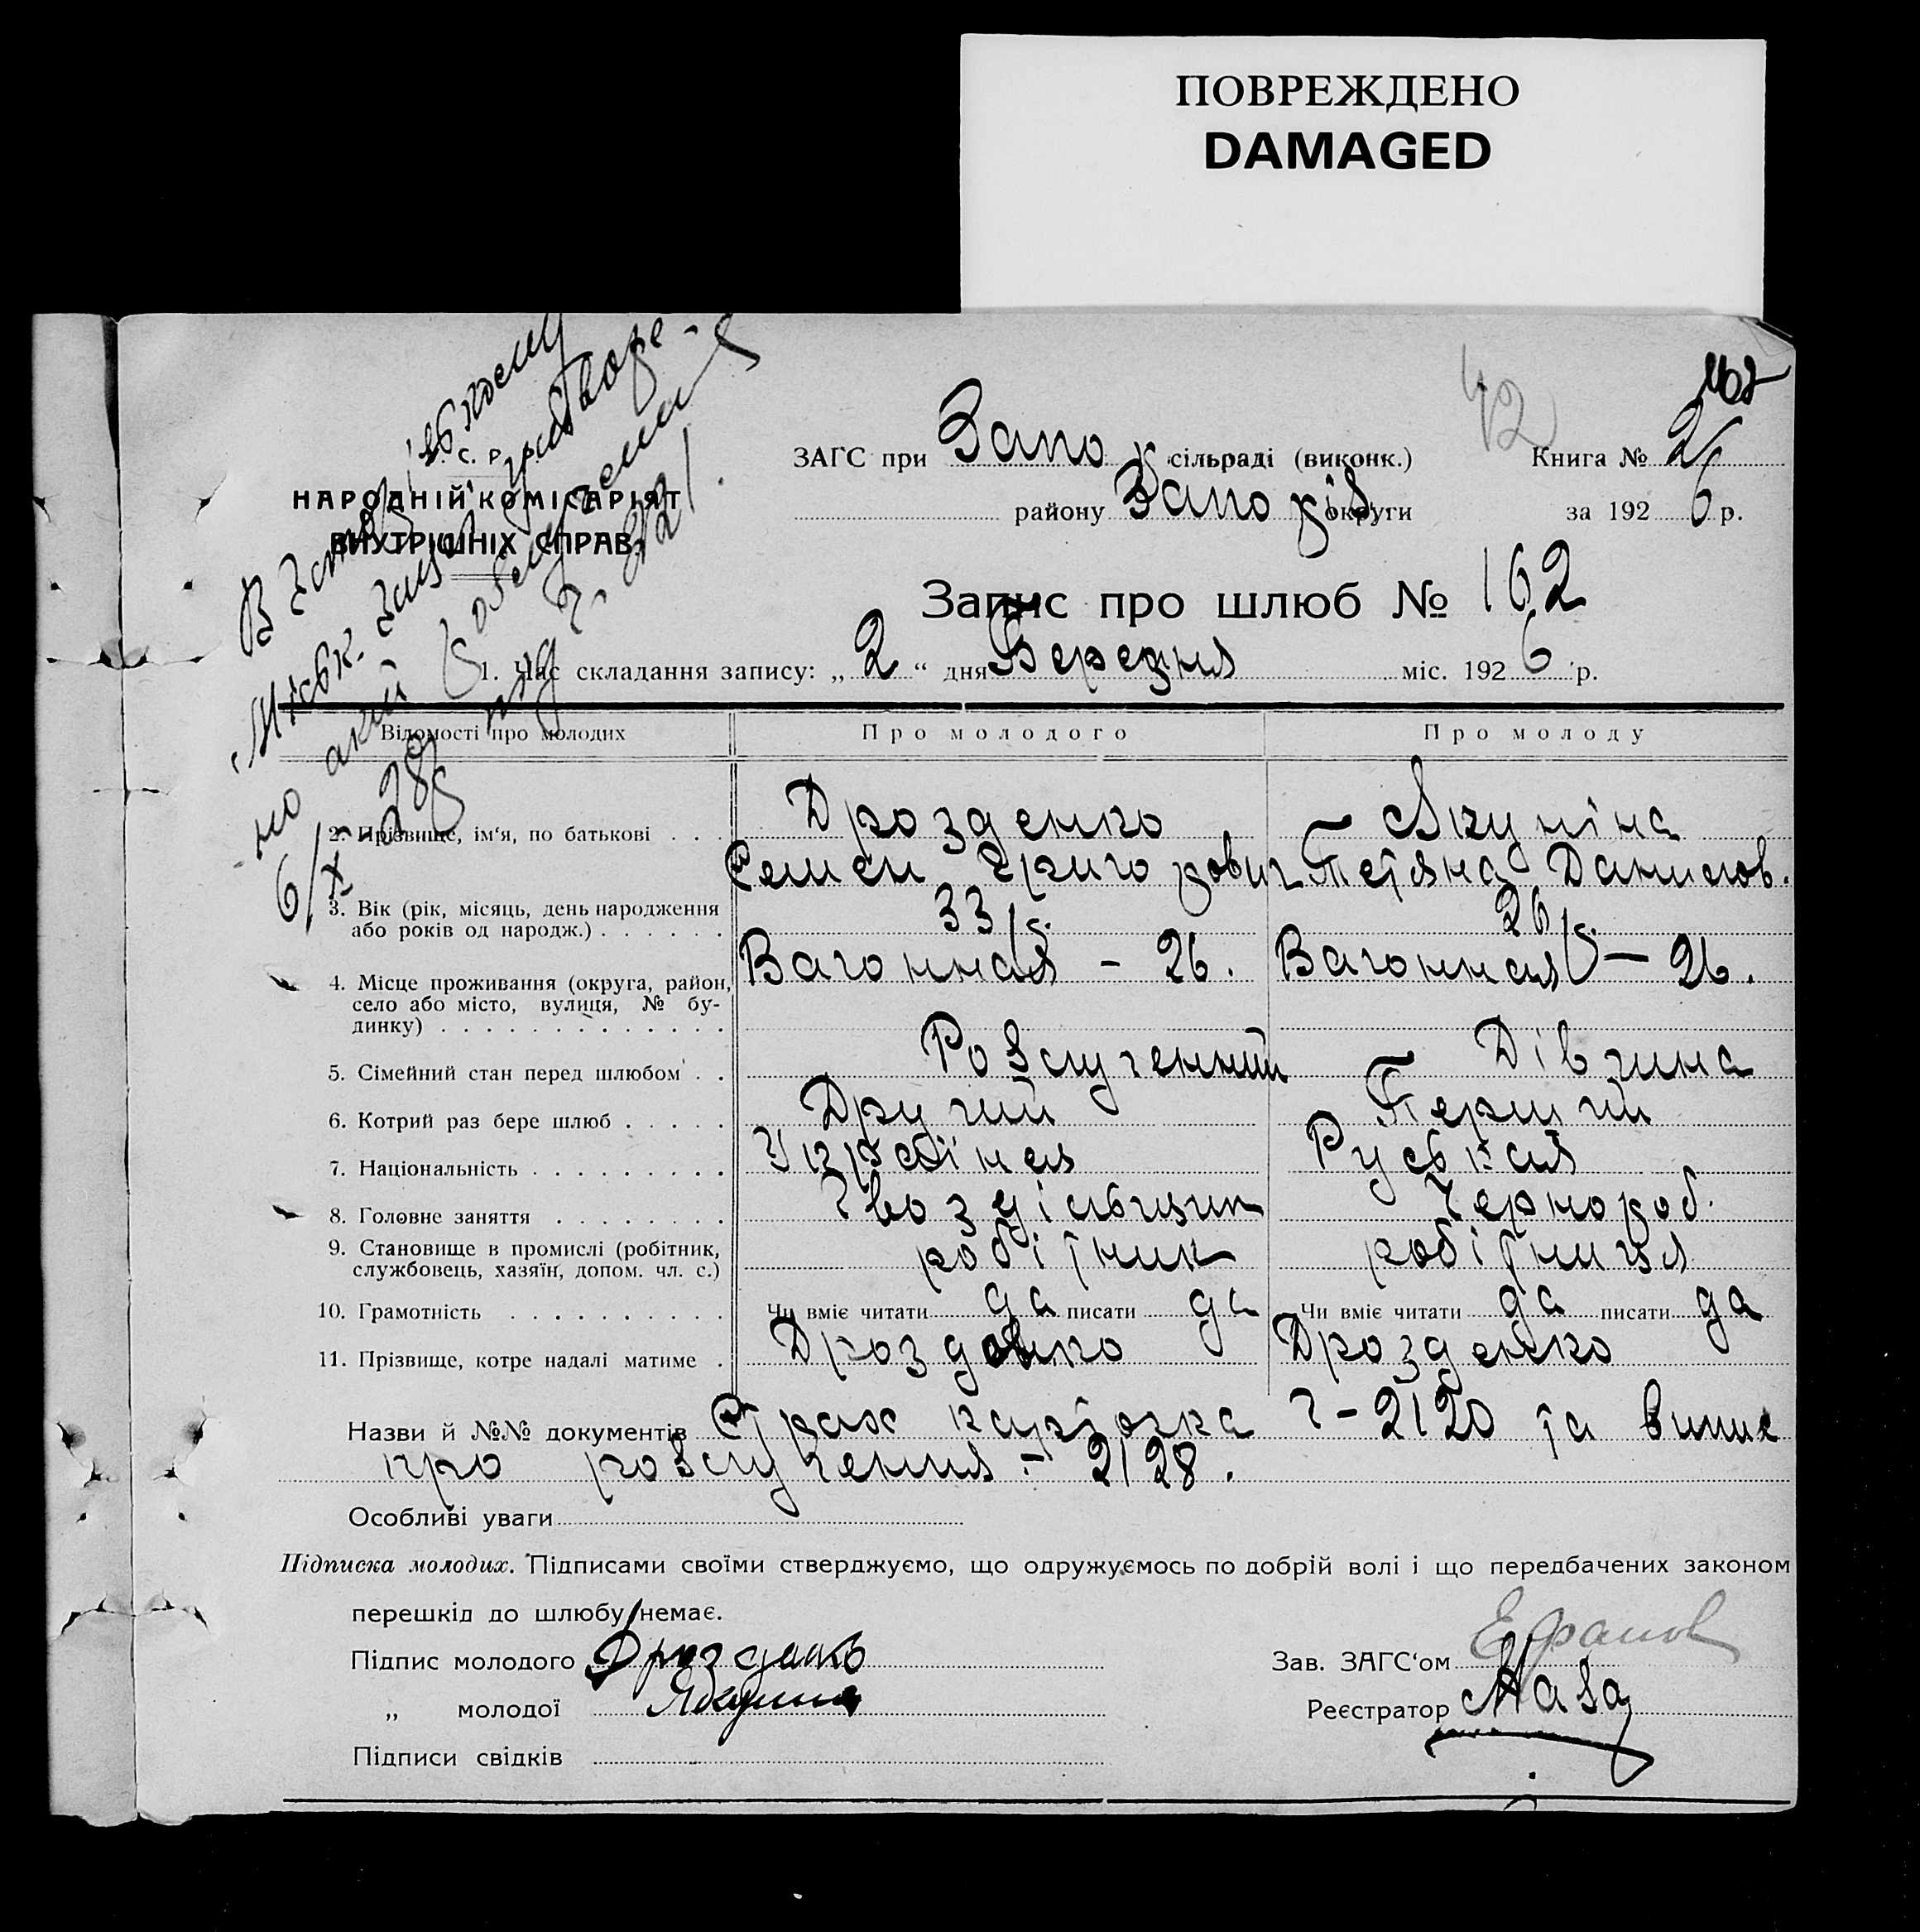 ПОВРЕЖДЕНО
DAMAGED
42
162
С. Р.
НАРОДНІЙ КОМІСАРІЯТ
ВНУТРІШНІХ СПРАВ
ЗАГС при Запо р сільраді (виконк.)
Книга № 2
району Запо різ округи
за 192 6 р.
Запис про шлюб № 162
1. Час складання запису: „ 2 “ дня Березня міс. 192 6 р.
Відомості про молодих Про молодого Про молоду
Дрозденко Якуніна
2. Прізвище, ім'я, по батькові
Семен Григорович Тетяна Данилов.
3. Вік (рік, місяць, день народження 33 р. 26 р.
або років од народж.)
Вагонная - 26. Вагонная — 26.
4. Місце проживання (округа, район,
село або місто, вулиця, № бу-
динку)
5. Сімейний стан перед шлюбом Розлученний Дівчина
6. Котрий раз бере шлюб Другий Перший
7. Національність Руськая
8. Головне заняття Гвоздільщик Чернороб.
9. Становище в промислі (робітник, робітник робітниця
службовець, хазяїн, допом. чл. с.)
10. Грамотність Чи вміє читати да писати да Чи вміє читати да писати да
11. Прізвище, котре надалі матиме Дрозденко Дрозденко
Назви й №№ документів Страх карточка Г-2120 та випис
про розлучення - 2128.
Особливі уваги
Підписка молодих. Підписами своїми стверджуємо, що одружуємось по добрій волі і що передбачених законом
перешкід до шлюбу немає.
Підпис молодого Дрозденко
Зав. ЗАГС'ом
„ молодої Якунина
Реєстратор
Підписи свідків